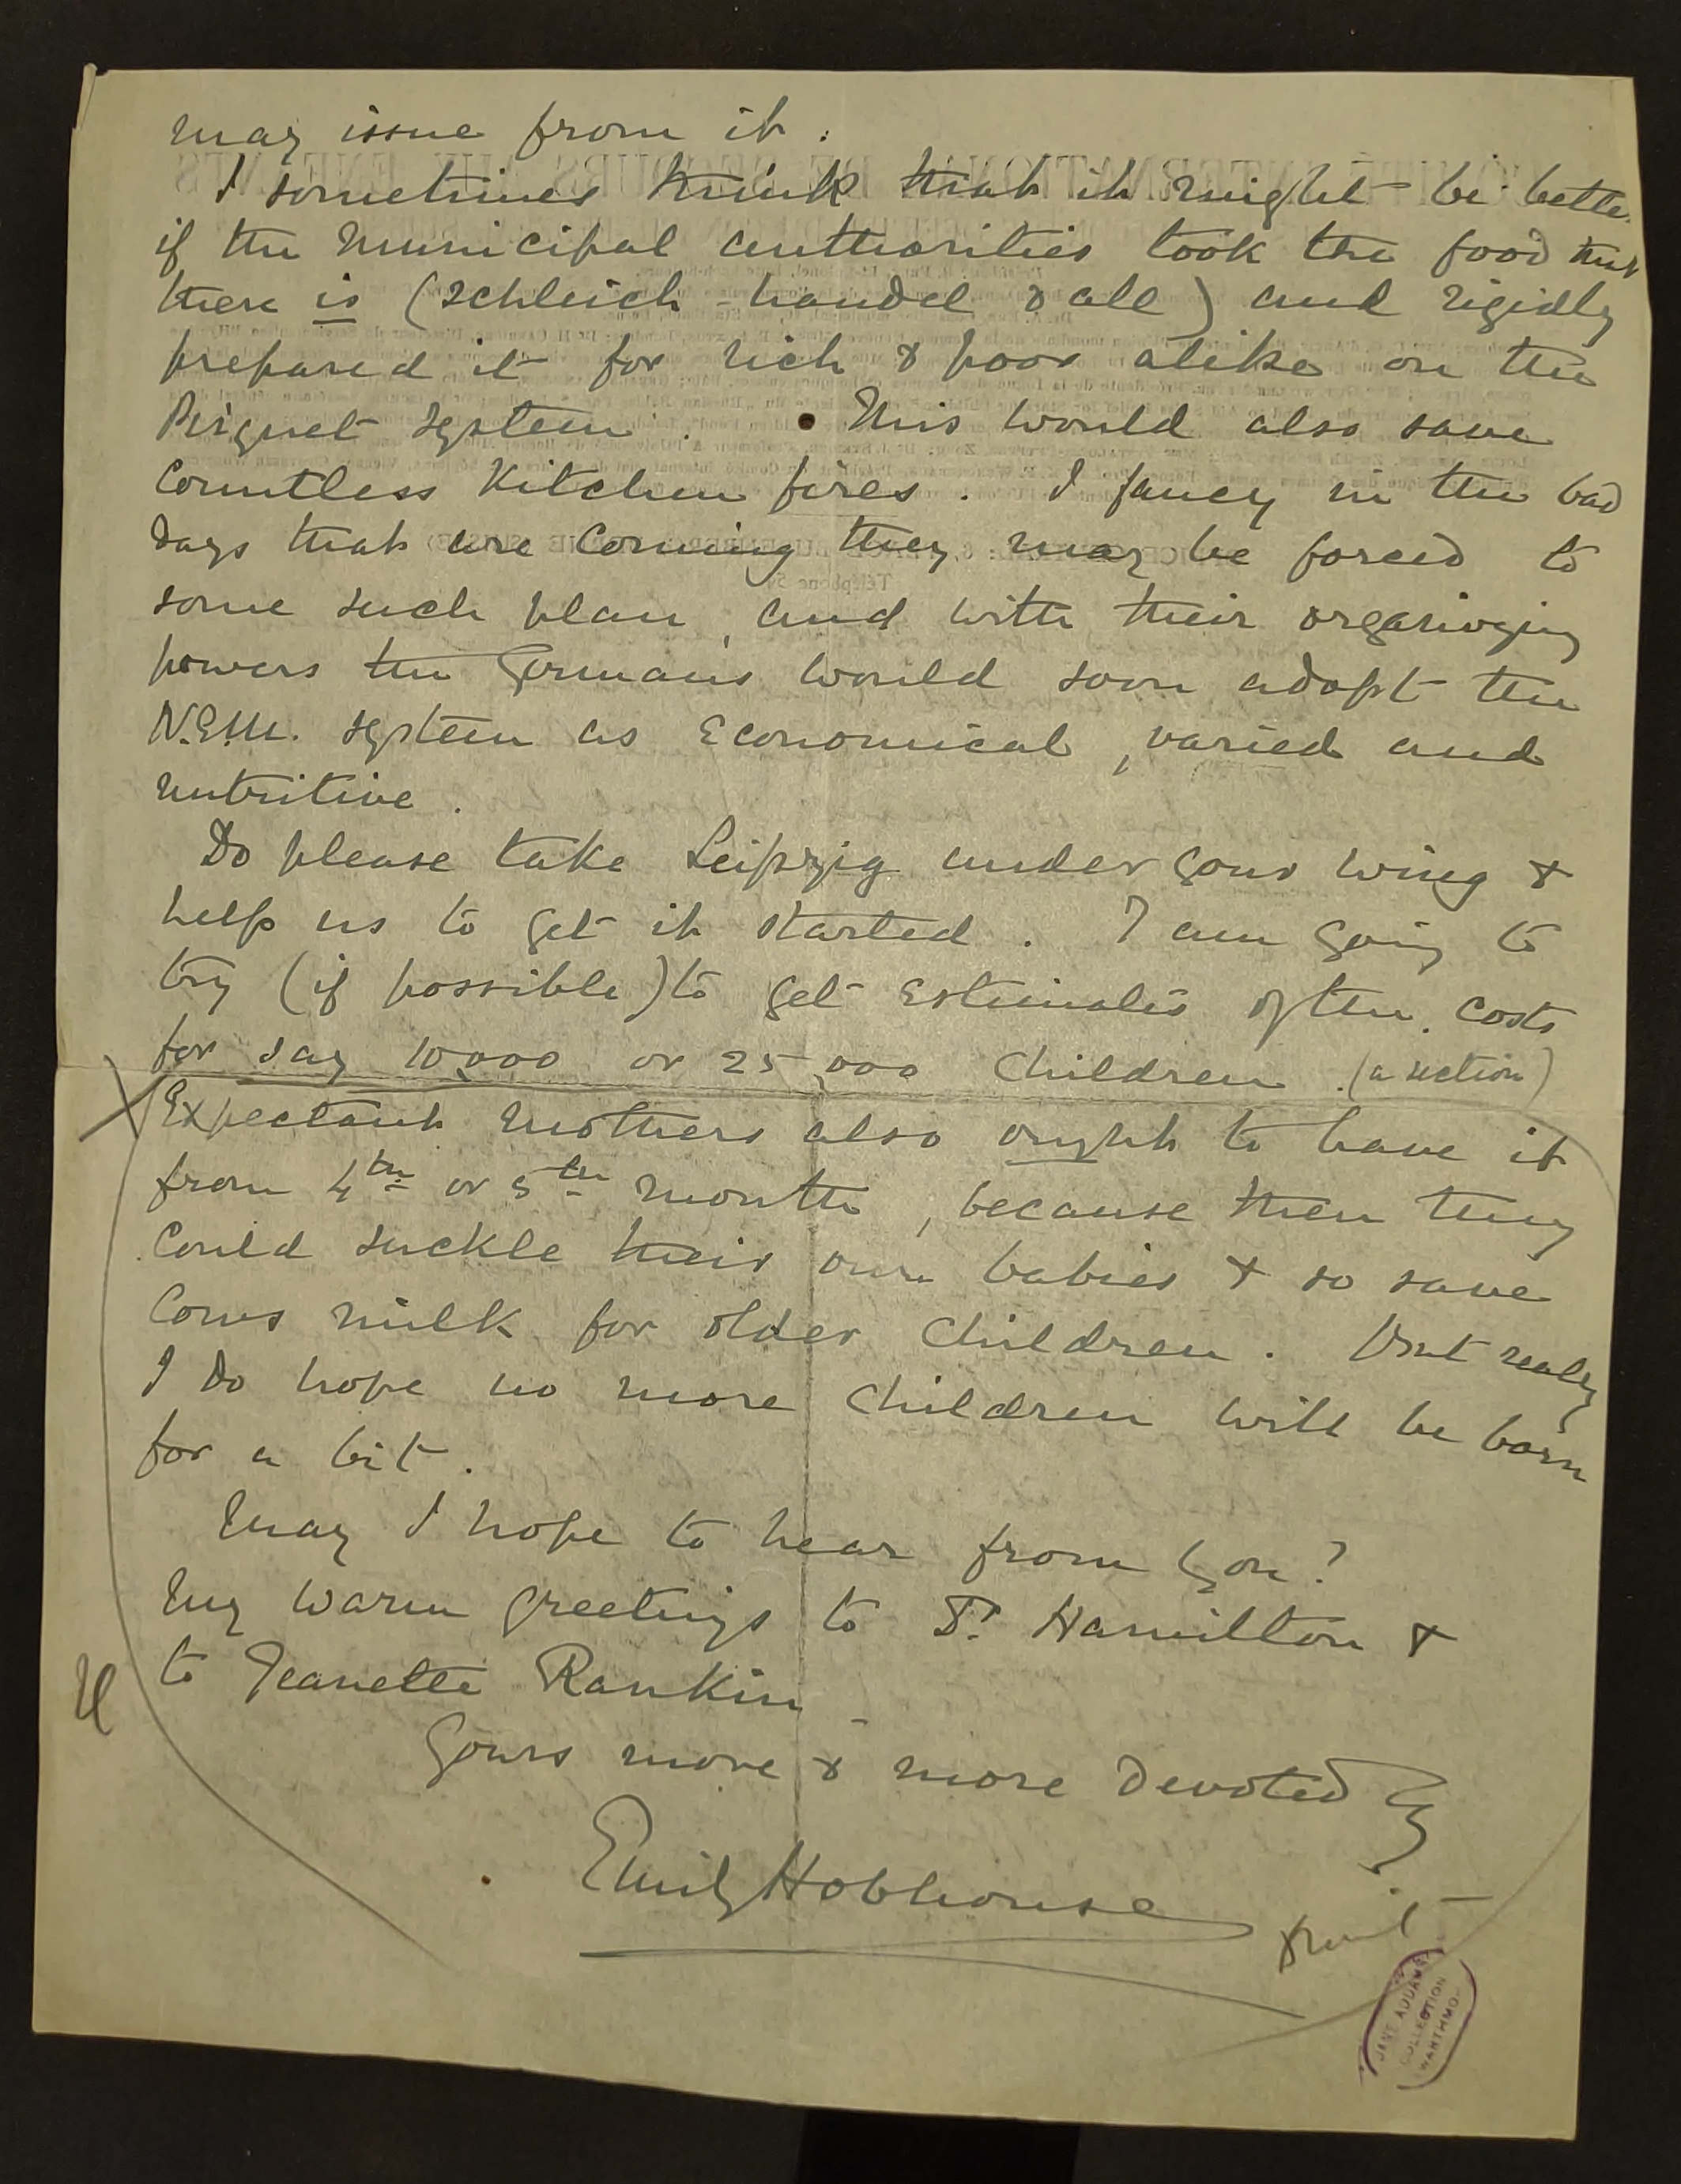 may issue from it.
I sometimes think that it might be better
if the Municipal authorities took the food that
there is (Schleich-handel & all) and rigidly
prepared it for rich & poor alike on the
Pirquet system. This would also save
countless Kitchen fires. I fancy in the bad
days that are coming they may be forced to
some such plan, and with their organizing
powers the Germans would soon adopt the
N.E.M. system as economical, varied and
nutritive.
Do please take Leipzig under your wing &
help us to get it started. I am going to
try (if possible) to get estimates of the costs
for say 10,000 or 25,000 children. (a section)
Expectant mothers also ought to have it
from 4th or 5th month, because then they
could suckle their own babies & so save
cows milk for older children. But really
I do hope no more children will be born
for a bit.
May I hope to hear from you?
My warm greetings to Dr. Hamilton &
to Jeanette Rankin
Yours more & more devotedly
Emily Hobhouse
JANE ADDAMS
COLLECTION
WARTHMO